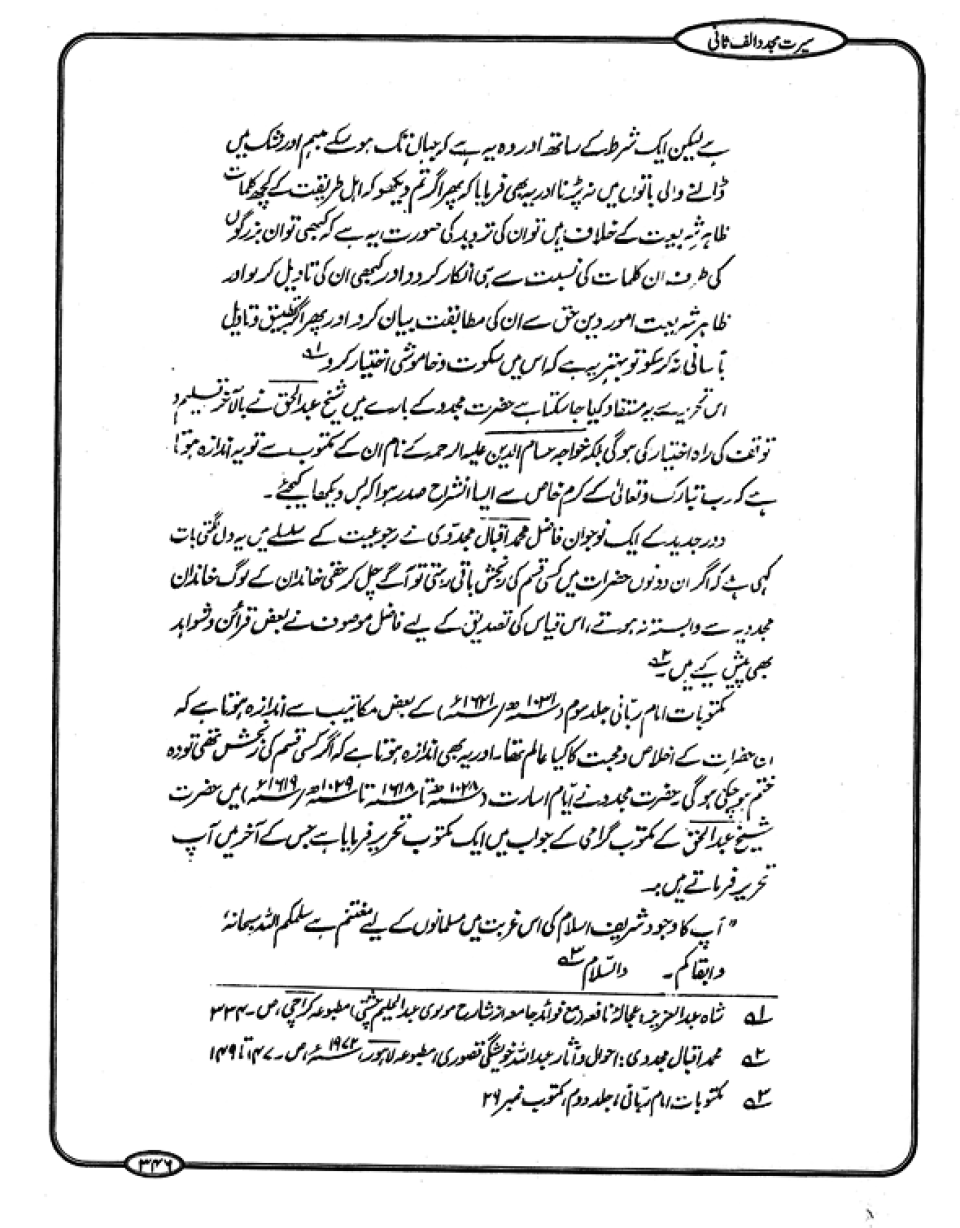 سیرت مجدد الف ثانی
ہے لیکن ایک شرط کے ساتھ اور وہ یہ ہے کہ جہاں تک ہو سکے مبہم اور شک میں
ڈالنے والی باتوں میں نہ پڑنا اور یہ بھی فرمایا کہ پھر اگر تم دیکھو کہ اہل طریقت کے کچھ کلمات
ظاہر شریعت کے خلاف ہیں تو ان کی تردید کی صورت یہ ہے کہ کبھی تو ان بزرگوں
کی طرف ان کلمات کی نسبت سے ہی انکار کردو اور کبھی ان کی تاویل کر لو اور
ظاہر شریعت امور دین حق سے ان کی مطابقت بیان کرو اور پھر اگر تطبیق و تاویل
بآسانی نہ کر سکو تو بہتر یہ ہے کہ اس میں سکوت و خاموشی اختیار کرو ۱؎
اس تحریر سے یہ مستفاد کیا جاسکتا ہے حضرت مجدد کے بارے میں شیخ عبدالحق نے بالآخر تسلیم و
توقف کی راہ اختیار کی ہوگی بلکہ خواجہ حسام الدین علیہ الرحمہ کے نام ان کے مکتوب سے تو یہ اندازہ ہوتا
ہے کہ رب تبارک وتعالیٰ کے کرم خاص سے ایسا انشراح صدر ہوا کہ بس دیکھا کیجئے۔
دور جدید کے ایک نوجوان فاضل محمد اقبال مجددی نے رجوعیت کے سلسلے میں یہ دل لگتی بات
کہی ہے کہ اگر ان دونوں حضرات میں کسی قسم کی رنجش باقی رہتی تو آگے چل کر حقی خاندان کے لوگ خاندان
مجددیہ سے وابستہ نہ ہوتے، اس قیاس کی تصدیق کے لیے فاضل موصوف نے بعض قرائن و شواہد
بھی پیش کیے ہیں۔ ۲؎
مکتوبات امام ربّانی جلد سوم (۱۰۳۱ھ/۱۶۲۱ء) کے بعض مکاتیب سے اندازہ ہوتا ہے کہ
ان حضرات کے اخلاص و محبت کا کیا عالم تھا۔ اور یہ بھی اندازہ ہوتا ہے کہ اگر کسی قسم کی رنجش تھی تو وہ
ختم ہو چکی ہوگی۔ حضرت مجدد نے ایّام اسارت (۱۰۲۸ھ تا ۱۶۱۸ تا ۱۰۲۹ھ/۱۶۱۹ء) میں حضرت
شیخ عبدالحق کے مکتوب گرامی کے جواب میں ایک مکتوب تحریر فرمایا ہے جس کے آخر میں آپ
تحریر فرماتے ہیں :۔
" آپ کا وجود شریف اسلام کی اس غربت میں مسلمانوں کے لیے مغتنم ہے سلمکم اللہ سبحانہٗ
وابقاکم۔ والسّلام ۳؎
۱؎ شاہ عبدالعزیز: عجالہ نافعہ (مع فوائد جامعہ از شارح مولوی عبدالحلیم چشتی) مطبوعہ کراچی، ص۔ ۳۳۴
۲؎ محمد اقبال مجددی: احوال و آثار عبداللہ خویشگی قصوری، مطبوعہ لاہور، ۱۹۷۲ء، ص۔ ۱۴۷ تا ۱۴۹
۳؎ مکتوبات امام ربّانی، جلد دوم، مکتوب نمبر ۲۶
۳۴۶